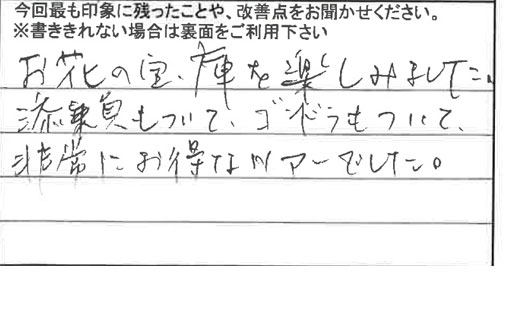 今回最も印象に残ったことや、改善点をお聞かせください。
※書ききれない場合は裏面をご利用下さい
お花の宝庫を楽しみました。
添乗員もついて、ゴンドラもついて、
非常にお得なツアーでした。